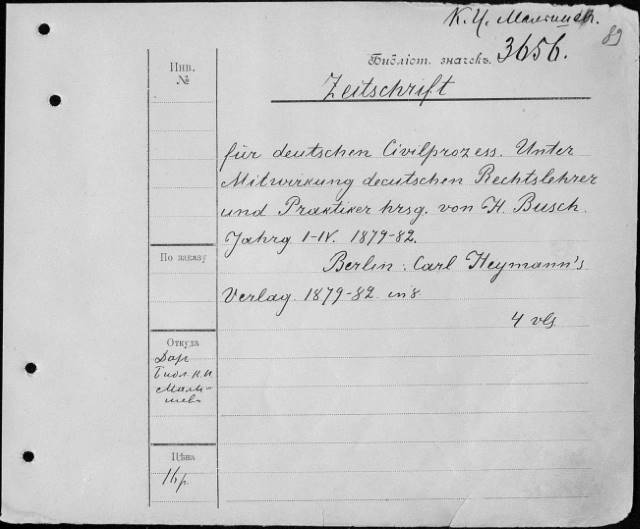 К. И. Малышев.
89
Библіот. значекъ. 3656.
Инв.
№
Zeitschrift
für deutschen Civilprozess. Unter
Mitwirkung deutschen Rechtslehrer
und Praktiker hrsg. von H. Busch.
Jahrg I-IV. 1879-82.
По заказу
Berlin: Carl Heymann's
Verlag. 1879-82. in 8
4 vls
Откуда
Дар
Библ. К. И
Малы-
шев
Цѣна
1 р.